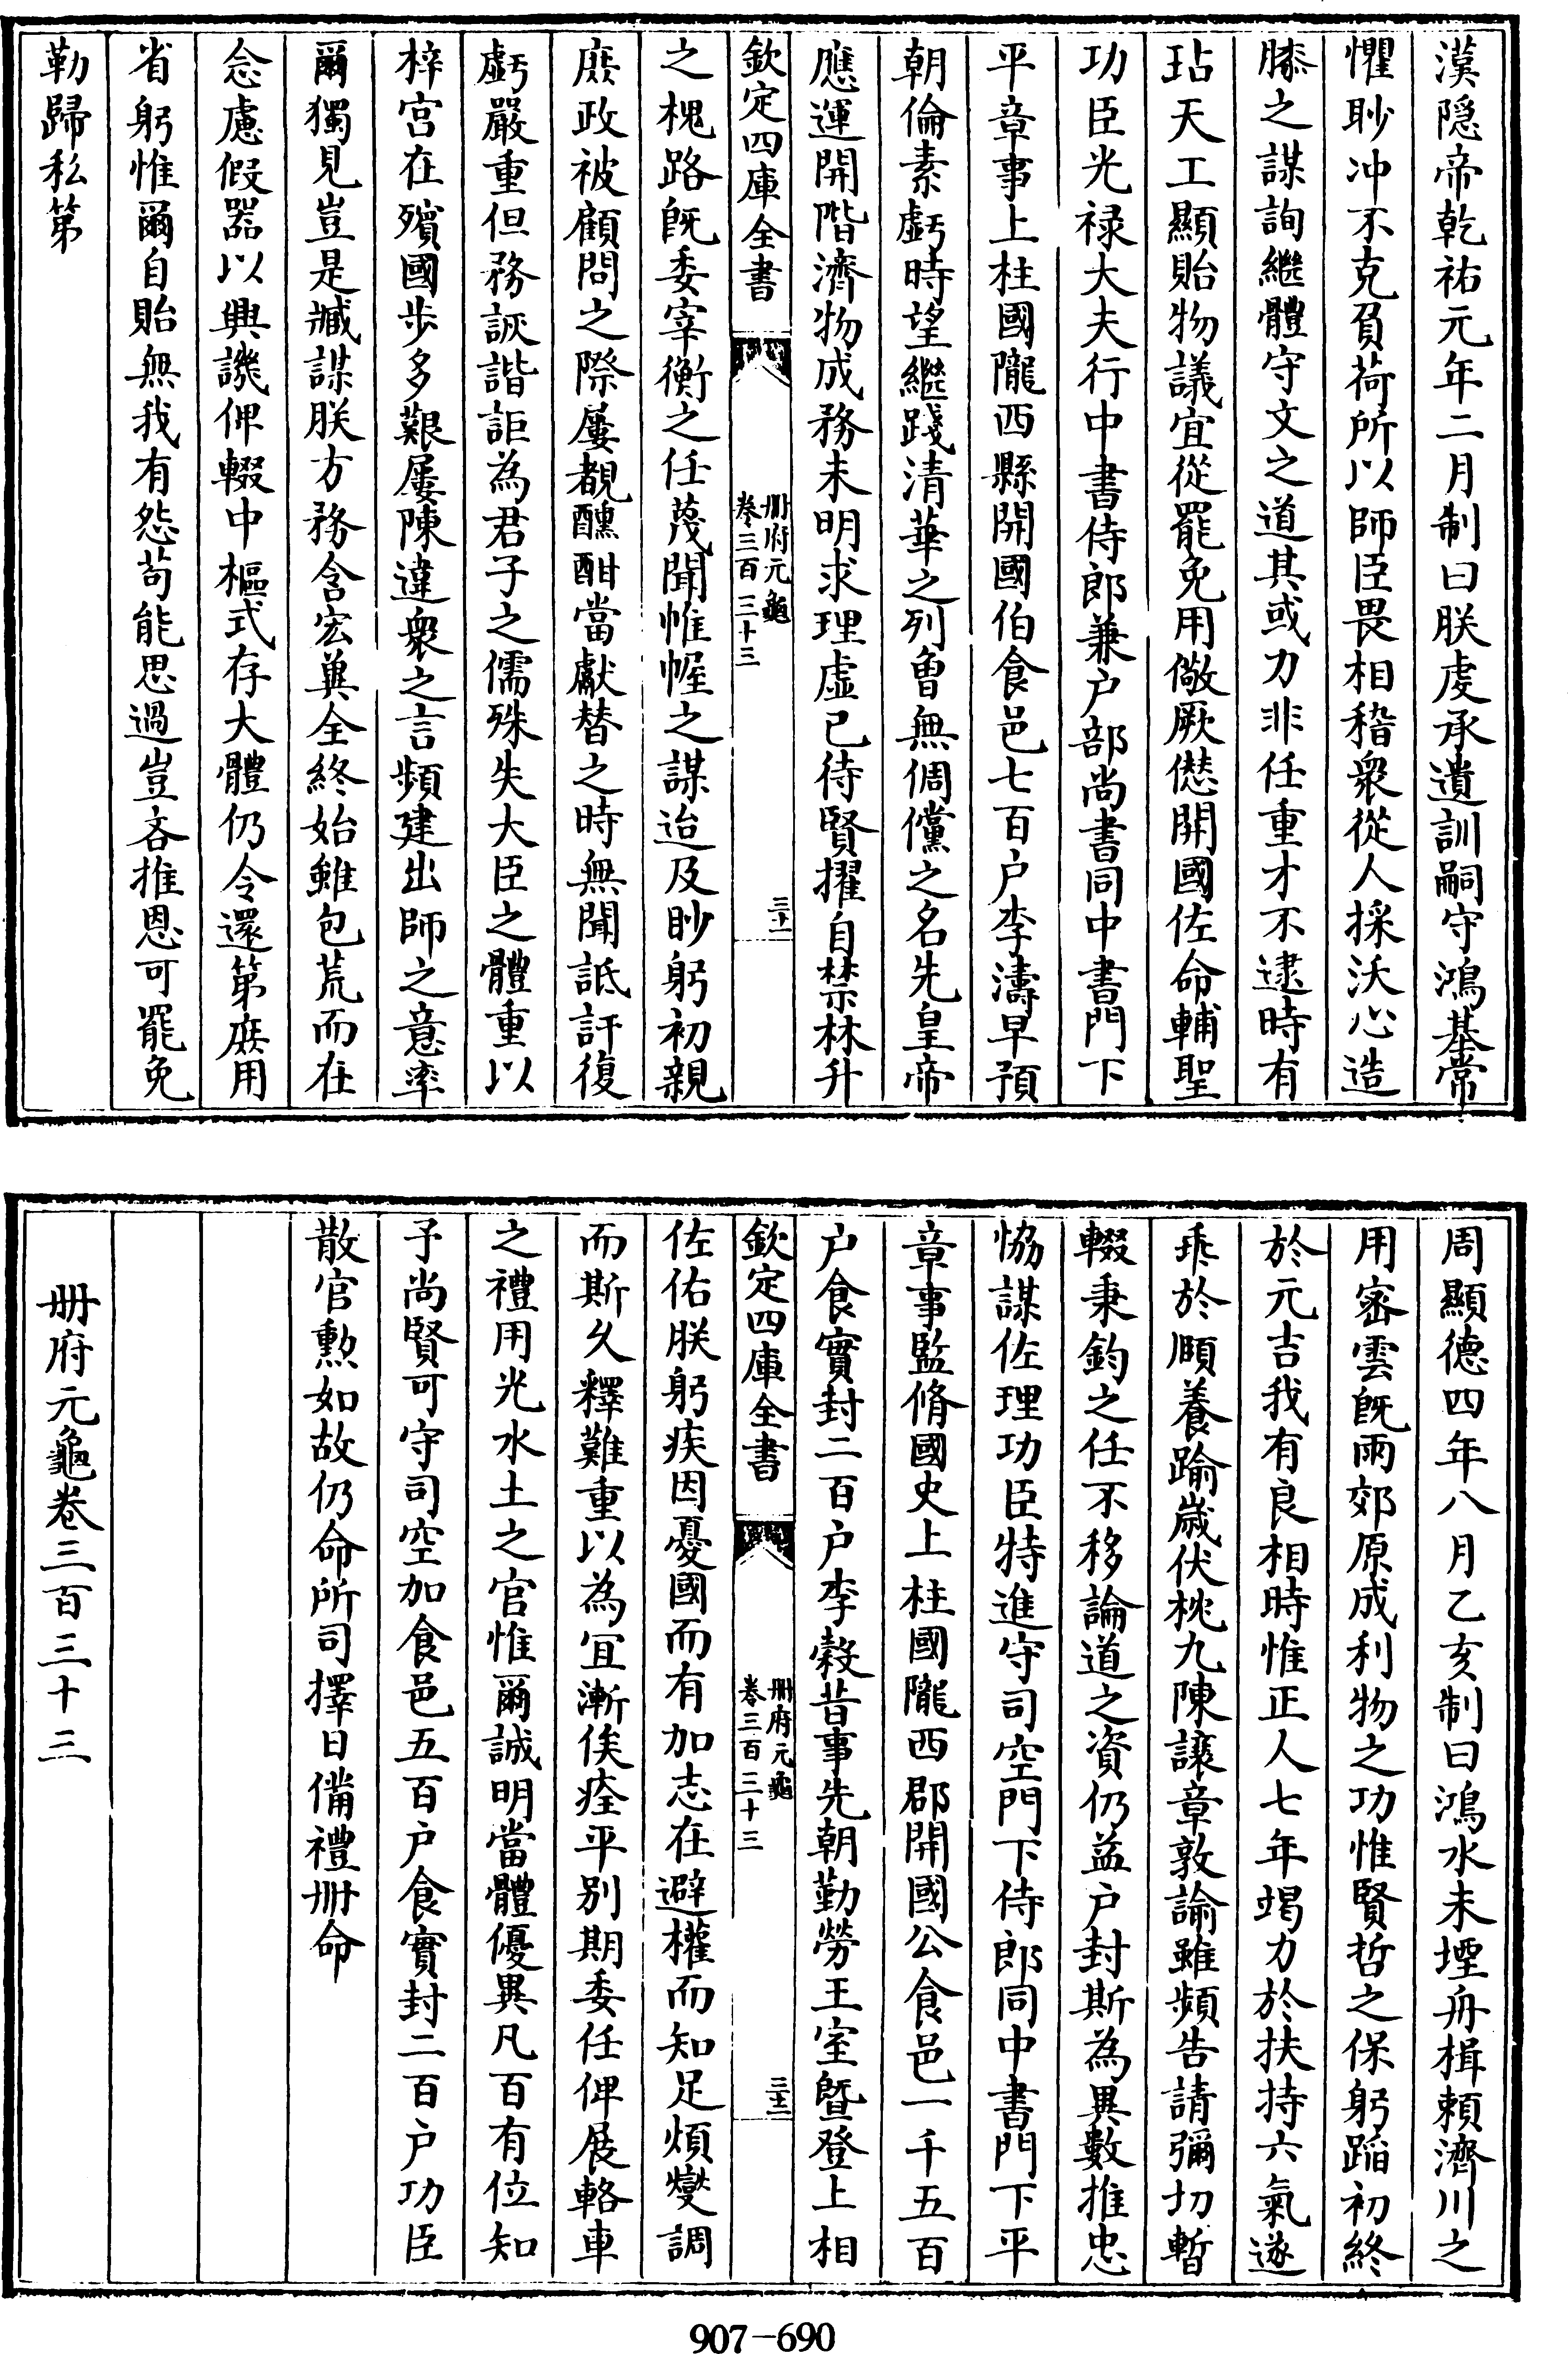 漢隱帝乾祐元年二月制曰朕虔承遺訓嗣守鴻基常
懼眇冲不克負荷所以師臣畏相稽衆從人採沃心造
膝之謀詢繼體守文之道其或力非任重才不逮時有
玷天工顯貽物議宜從罷免用儆厥愆開國佐命輔聖
功臣光禄大夫行中書侍郎兼户部尚書同中書門下
平章事上柱國隴西縣開國伯食邑七百户李濤早預
朝倫素虧時望繼踐清華之列曾無倜儻之名先皇帝
應運開階濟物成務未明求理虚已待賢擢自禁林升
欽定四庫全書
册府元龜
卷三百三十三
三十一
之槐路旣委宰衡之任蔑聞帷幄之謀迨及眇躬初親
庶政被顧問之際屢覩醺酣當獻替之時無聞詆訐復
虧嚴重但務詼諧詎為君子之儒殊失大臣之體重以
梓宫在殯國步多艱屢陳違衆之言頻建出師之意率
爾獨見豈是臧謀朕方務含宏兾全終始雖包荒而在
念慮假器以興譏俾輟中樞式存大體仍令還第庶用
省躬惟爾自貽無我有怨茍能思過豈吝推恩可罷免
勒歸私第
周顯德四年八月乙亥制曰鴻水未堙舟楫頼濟川之
用密雲旣雨郊原成利物之功惟賢哲之保躬蹈初終
於元吉我有良相時惟正人七年竭力於扶持六氣遂
乖於頤養踰歲伏枕九陳讓章敦諭雖頻告請彌切暫
輟秉鈞之任不移論道之資仍益户封斯為異數推忠
恊謀佐理功臣特進守司空門下侍郎同中書門下平
章事監脩國史上柱國隴西郡開國公食邑一千五百
户食實封二百户李穀昔事先朝勤勞王室曁登上相
欽定四庫全書
册府元龜
卷三百三十三
三十二
佐佑朕躬疾因憂國而有加志在避權而知足煩燮調
而斯久釋難重以為宜漸俟痊平别期委任俾展輅車
之禮用光水土之官惟爾誠明當體優異凡百有位知
予尚賢可守司空加食邑五百户食實封二百户功臣
散官勲如故仍命所司擇日備禮册命
册府元龜卷三百三十三
907-690